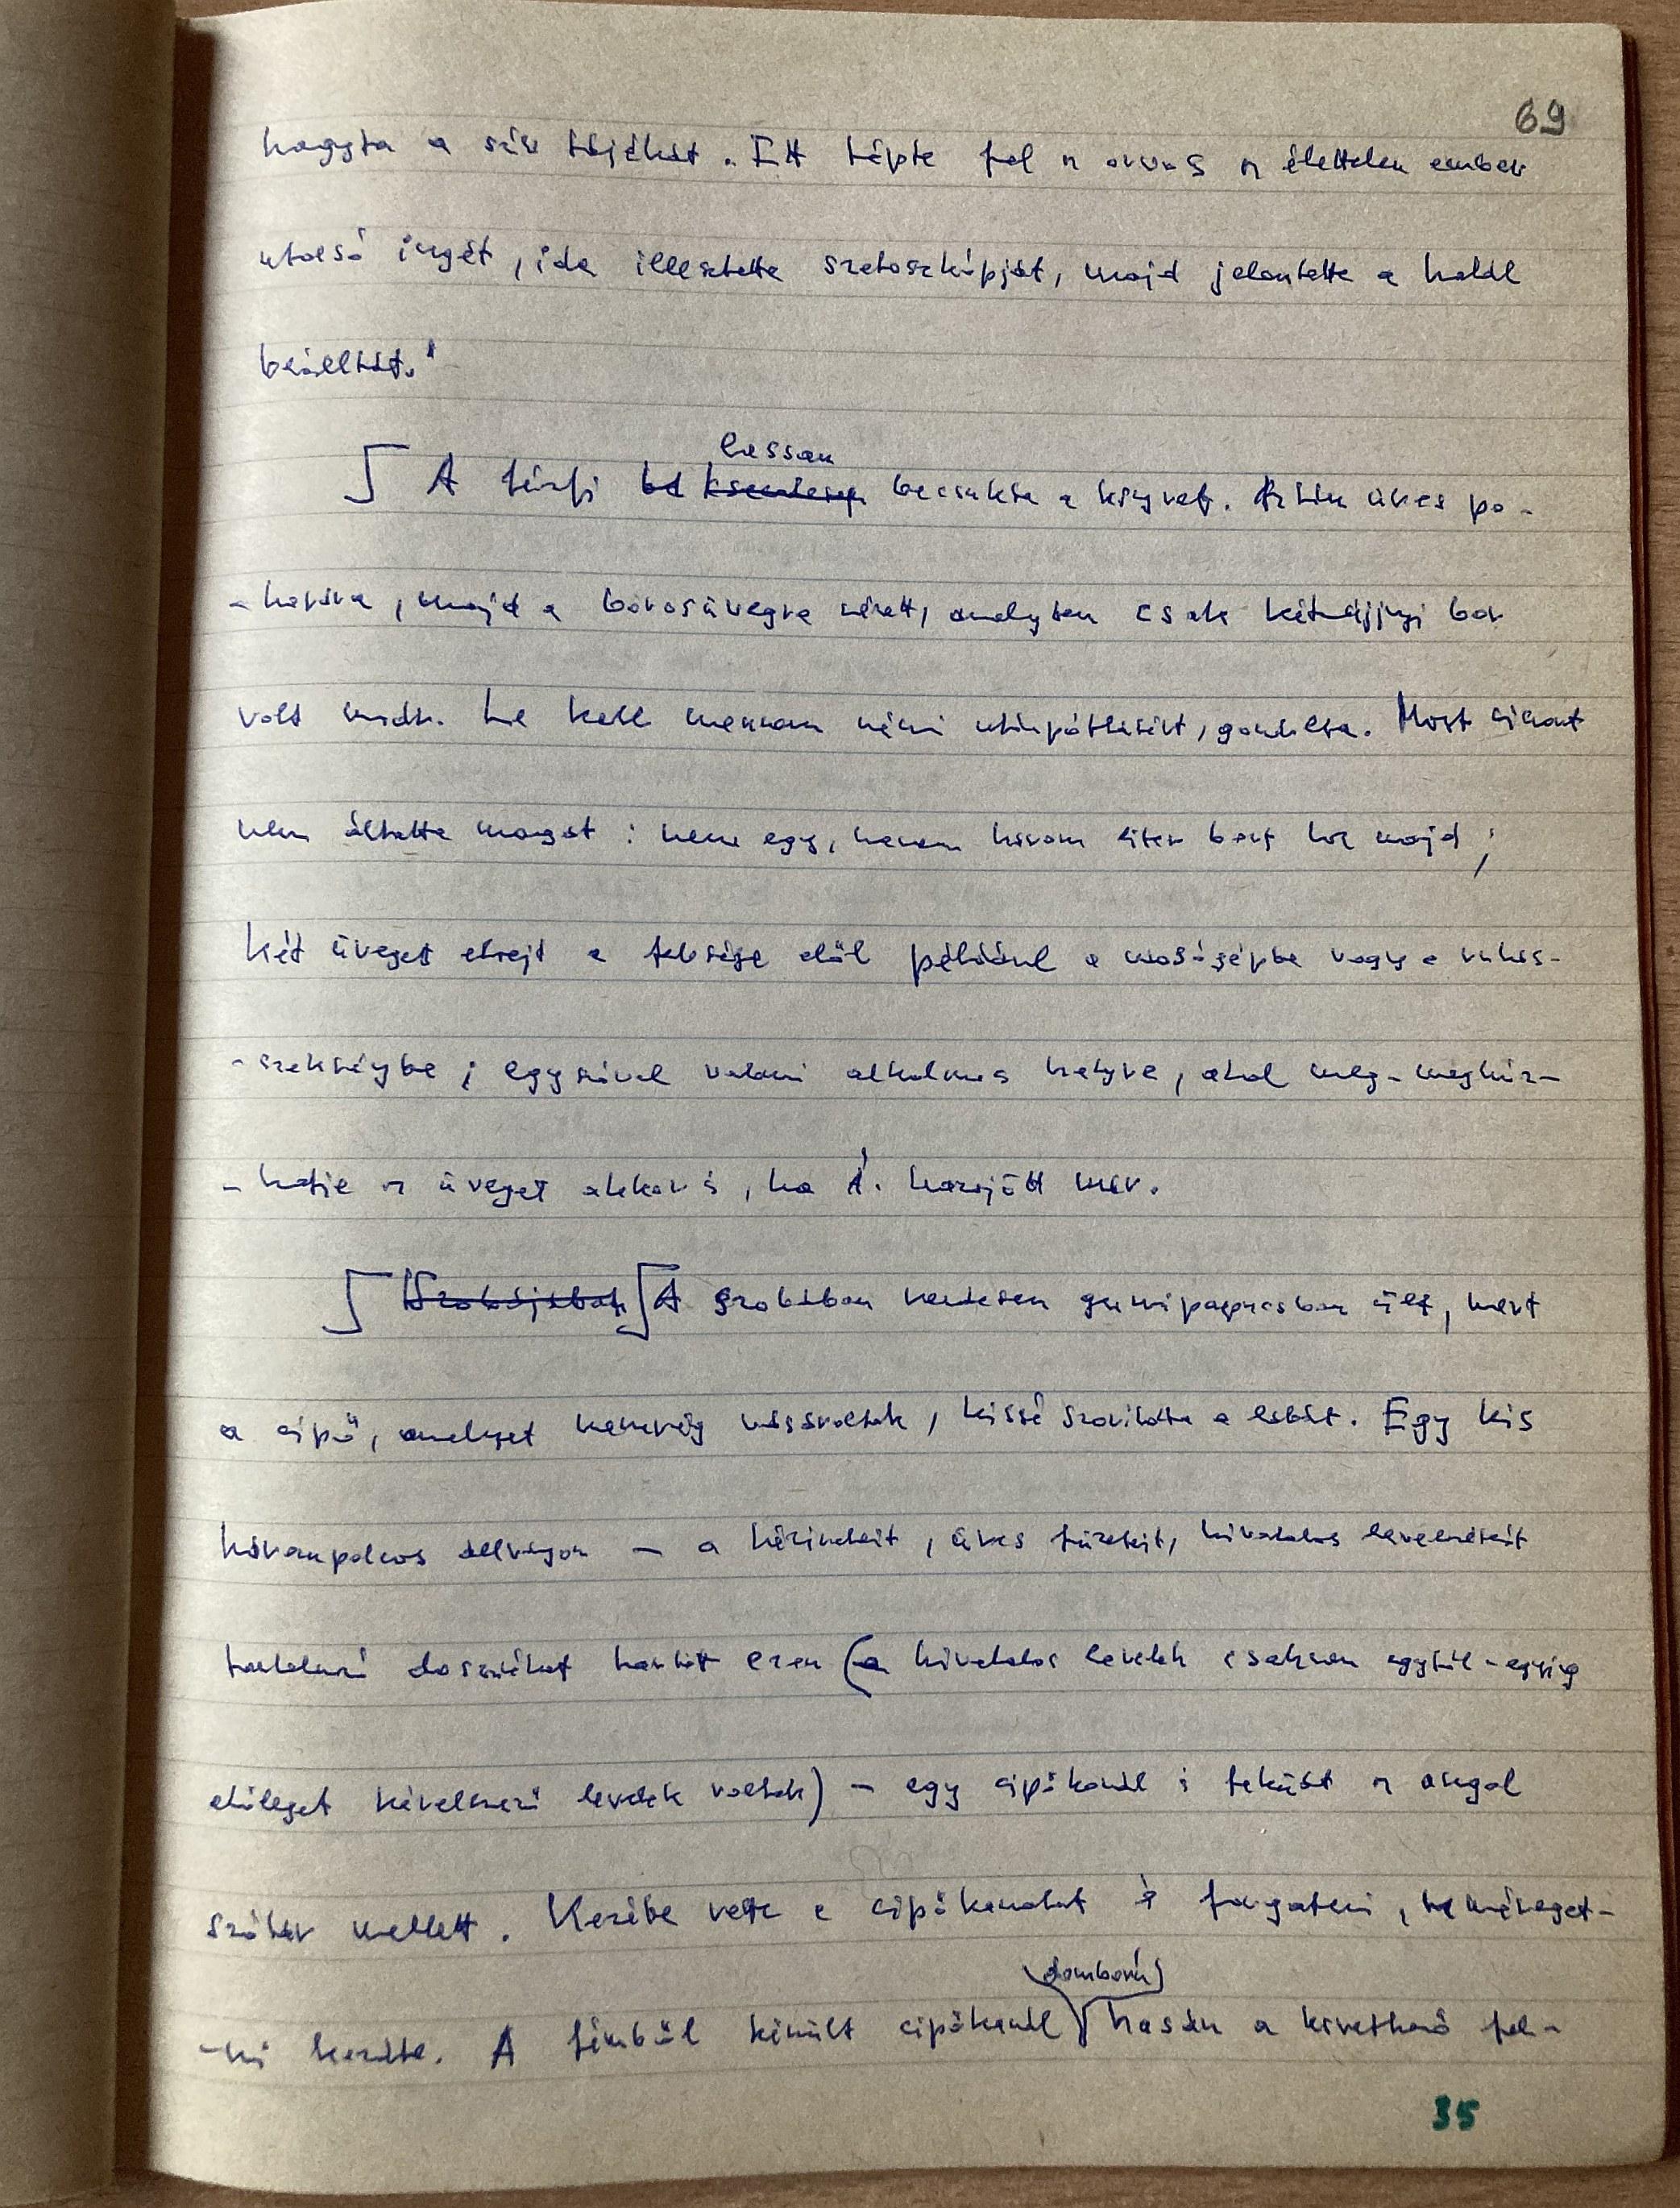 69
hagyta a szív tájékát. Itt tépte fel az orvos az élettelen ember
utolsó ingét, ide illesztette sztetoszkópját, majd jelentette a halál
beálltát."
lassan
A férfi be becsukta a könyvet. Aztán üres po-
-harára, majd a borosüvegre nézett, amelyben csak kétujjnyi bor
volt már. Le kell mennem némi utánpótlásért, gondolta. Most viszont
nem áltatta magát: nem egy, hanem három liter bort hoz majd;
két üveget elrejt a felesége elől például a mosógépbe vagy a ruhás-
-szekrénybe; egyszóval valami alkalmas helyre, ahol meg-meghúz-
-hatja az üveget akkor is, ha Á. hazajött már.
Szobájában A szobában rendesen gumipapucsban ült, mert
a cipő, amelyet nemrég vásároltak, kissé szorította a lábát. Egy kis
háromplocos állványon – a kéziratait, üres füzeteit, hivatalos leveleit
tartalmazó dossziékat tartott ezen (a hivatalos levelek csaknem egytől-egyig
előleget követelő levelek voltak) – egy cipőkanál is feküdt az angol
szótár mellett. Kezébe vette a cipőkanalat és forgatni, nézeget-
-ni kezdte. A fémből készült cipőkanál domború hasán a következő fel-
35